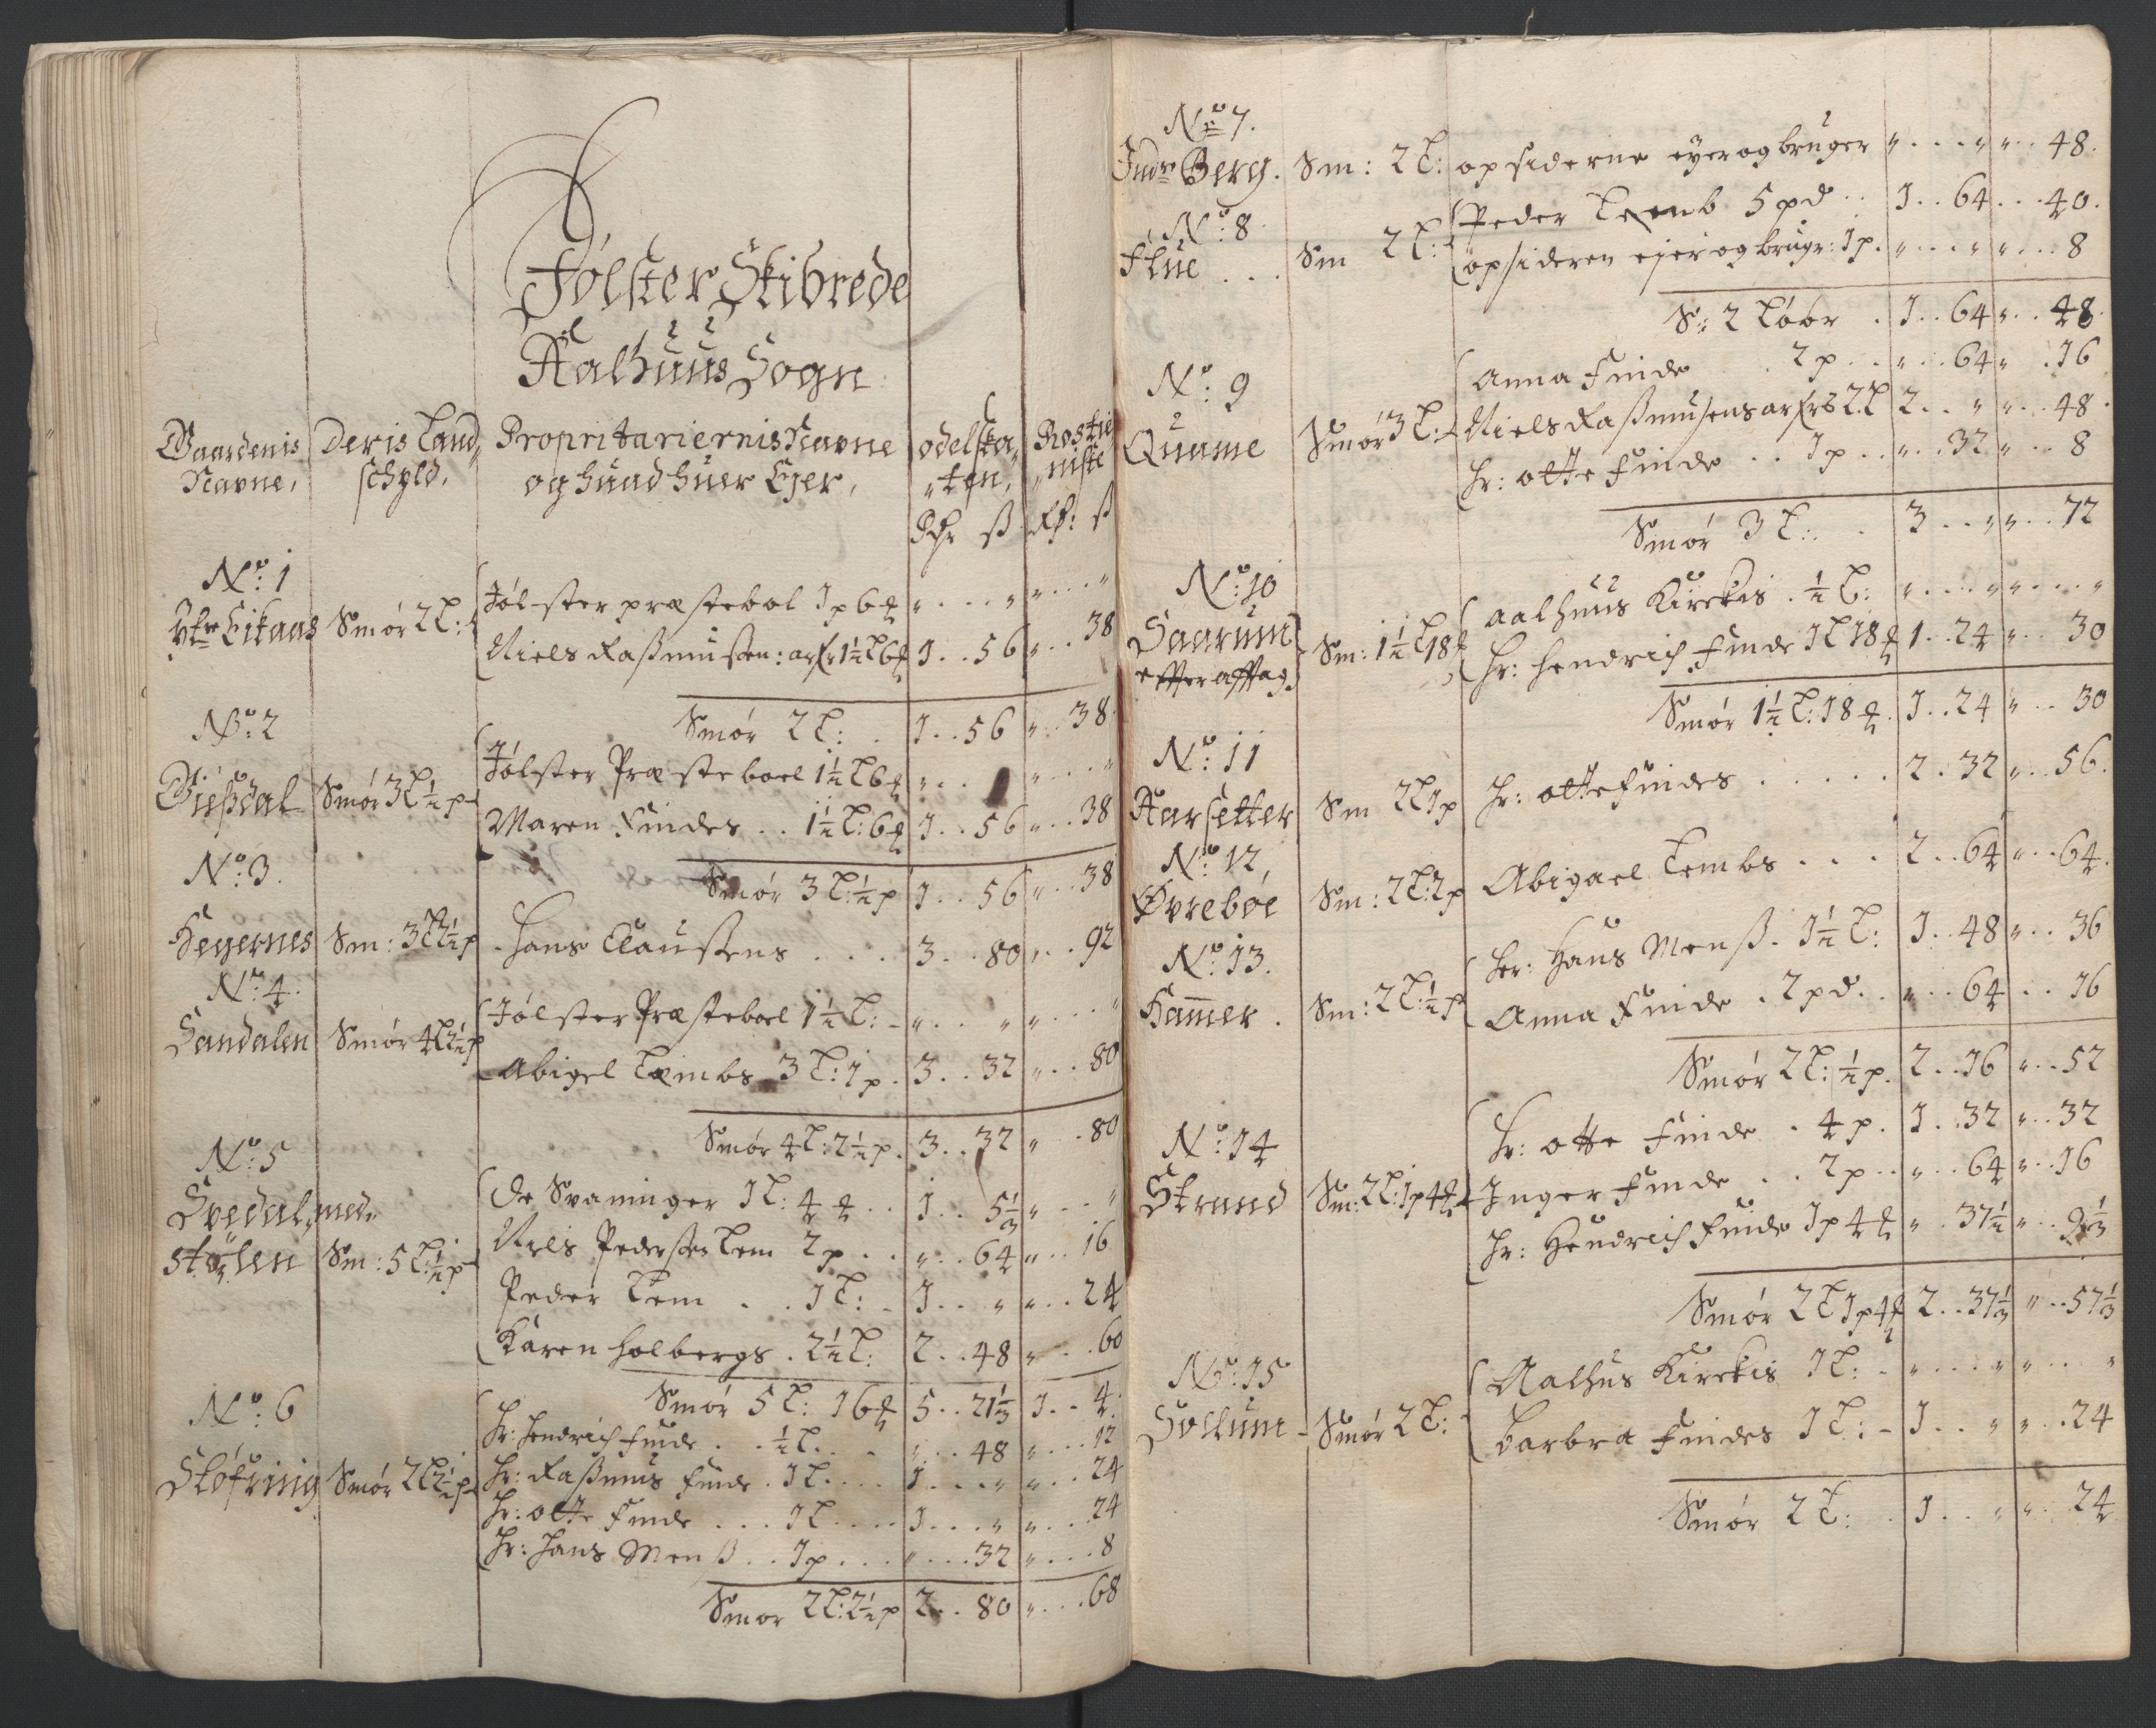 Jølster Skibrede
Aalhuus Sogn
Gaardenis Navne,
Deris Land„ schyld,
Propritariernis Navne og huad huer Ejer,
odelska„ „ten, Rdr ß
Rostie„ „niste Rdr: ß
No: 1
Ytre Eikaas Smør 2 L: Jølster præstebol 1 p 6 m „ . . . „ „ . . . „
Niels Rasmussen: arfr 1½ L 6 m 1 . . 56 „ . . 38
Smør 2 L: . 1 . . 56 „ . . 38
No: 2
Giesdal Smør 3 L ½ p Jølster Præsteboel 1½ L 6 m „ . . . „ . . . „
Maren Findes . . 1½ L: 6 m 1 . . 56 „ . . 38
Smør 3 L: ½ p 1 . . 56 „ . . 38
No: 3
Hegernes Sm: 3 L 2½ p Hans Claussens . . . 3 . . 80 „ . . 92
No: 4
Sandalen Smør 4 L 2½ p Jølster Præsteboel 1½ L: „ . . . „ „ . . . „
Abigel Lembs 3 L: 1 p . 3 . . 32 „ . . 80
Smør 4 L: 2½ p . 3 . . 32 „ . . 80
No: 5
Svedal, med„
stølen Sm: 5 L: ½ p De Svaninger 1 L: 4 m . . 1 . . 5⅓ „ . . . „
Niels Pedersen Lem 2 p . . „ . . 64 „ . . 16
Peder Lem . . 1 L: . 1 . . „ „ . . 24
Karen Holbergs . 2½ L: 2 . . 48 „ . . 60
Smør 5 L: 16 m 5 . . 21⅓ 1 . . 4
No: 6
Støfring Smør 2 L 2½ p Hr: Hendrich Finde . . ½ L . . . „ . . 48 „ . . . 12
Hr: Rasmus Finde . 1 L . . . . 1 . . . „ „ . . . 24
Hr: otte Finde . . . 1 L . . . . 1 . . . „ „ . . . 24
Hr: Hans Mens . . 1 p . . . „ . . . 32 „ . . . 8
Smør 2 L: 2½ p 2 . . 80 „ . . . 68
No 7.
Indre Berg. Sm: 2 L: opsiderne eyer og bruger „ . . . „ „ . . 48.
No: 8
Flue . . . Sm 2 L: Peder Lemb 5 pd . . 1 . . 64 . . . 40.
opsideren ejer og bruger: 1 p. „ . . . „ „ . . . 8
S: 2 Løber . 1 . . 64 „ . . 48.
No: 9
Quame Smør 3 L: Anna Finde . 2 p . . „ . . 64 „ . 16
Niels Rasmusens arfr 2 L 2 . . „ „ . . 48.
Hr: otte Finde . . 1 p . . „ . . 32 „ . . 8
Smør 3 L: . 3 . . „ „ . . 72
No: 10
Saarum
effter afftag Sm: 1½ L 18 m aalhuus Kirckis . ½ L: „ . . . „ „ . . . „
Hr: Hendrich Finde 1 L 18 m 1 . . 24 „ . . 30
Smør 1½ L: 18 m . 1 . . 24 „ . . 30
No: 11
Aarsetter Sm 2 L 1 p Hr: otte Findes . . . . . 2 . 32 „ . . 56.
No: 12,
Øvrebøe Sm: 2 L: 2 p Abigael Lembs . . . 2 . . 64 „ . . 64.
No: 13.
Hamer . Sm: 2 L: ½ p Hr: Hans Mens . 1½ L: 1 . . 48 „ . . 36
Anna Finde . 2 pd . . „ . . 64 . . 16
Smør 2 L: ½ p . 2 . . 16 „ . . 52
No: 14
Strand Sm: 2 L: 1 p 4 m Hr: otte Finde . 4 p . 1 . . 32 „ . . 32
Inger Finde . . 2 p . . „ . . 64 „ . . 16
Hr: Hendrich Finde 1 p 4 m „ . 37½ „ . . 9⅓
Smør 2 L 1 p 4 m 2 . . 37⅓ „ . . 57⅓
No: 15
Sollum Smør 2 L: Aalhus Kirckis 1 L: . „ . . . „ „ . . . „
Barbra Findes 1 L: . 1 . . „ „ . . 24
Smør 2 L: . 1 . . „ „ . . 24